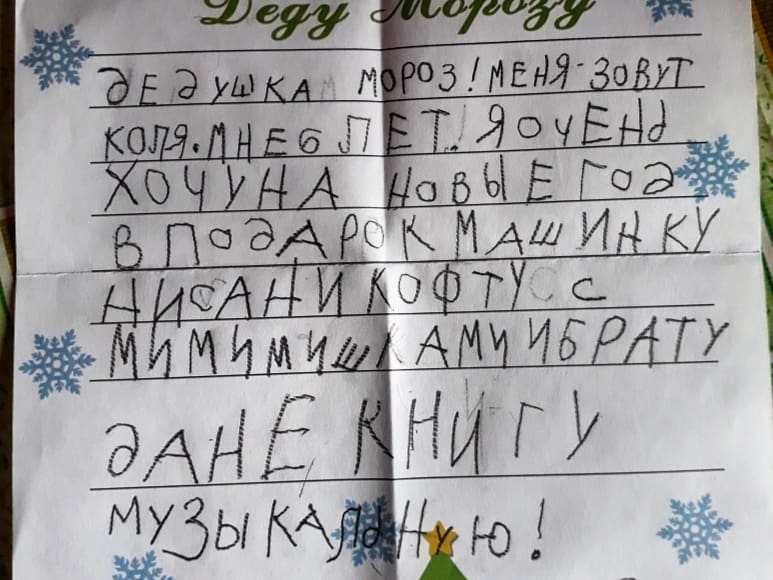 Деду Морозу
ДЕДУШКА МОРОЗ! МЕНЯ ЗОВУТ
КОЛЯ. МНЕ 6 ЛЕТ. Я ОЧЕНЬ
ХОЧУ НА НОВЫЕ ГОД
В ПОДАРОК МАШИНКУ
НИСАН И КОФТУ С
МИМИМИШКАМИ И БРАТУ
ДАНЕ КНИГУ
МУЗЫКАЛЬНУЮ!